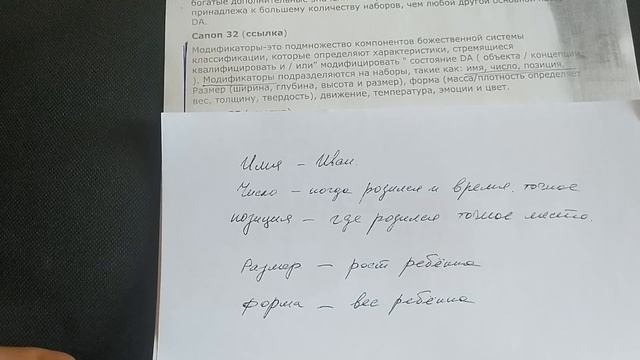 богатые дополнительные
принадлежа к большему количеству наборов, чем любой другой основной
DA.
Canon 32 (ссылка)
Модификаторы-это подмножество компонентов божественной системы
классификации, которые определяют характеристики, стремящиеся
квалифицировать и / или" модифицировать " состояние DA ( объекта / концепции
). Модификаторы подразделяются на наборы, такие как: имя, число, позиция,
Размер (ширина, глубина, высота и размер), форма (масса/плотность определяет
вес, толщину, твердость), движение, температура, эмоции и цвет.
Имя – Иван.
Число – когда родился и время точное
позиция – где родился точное место.
Размер – рост ребёнка
форма – вес ребёнка